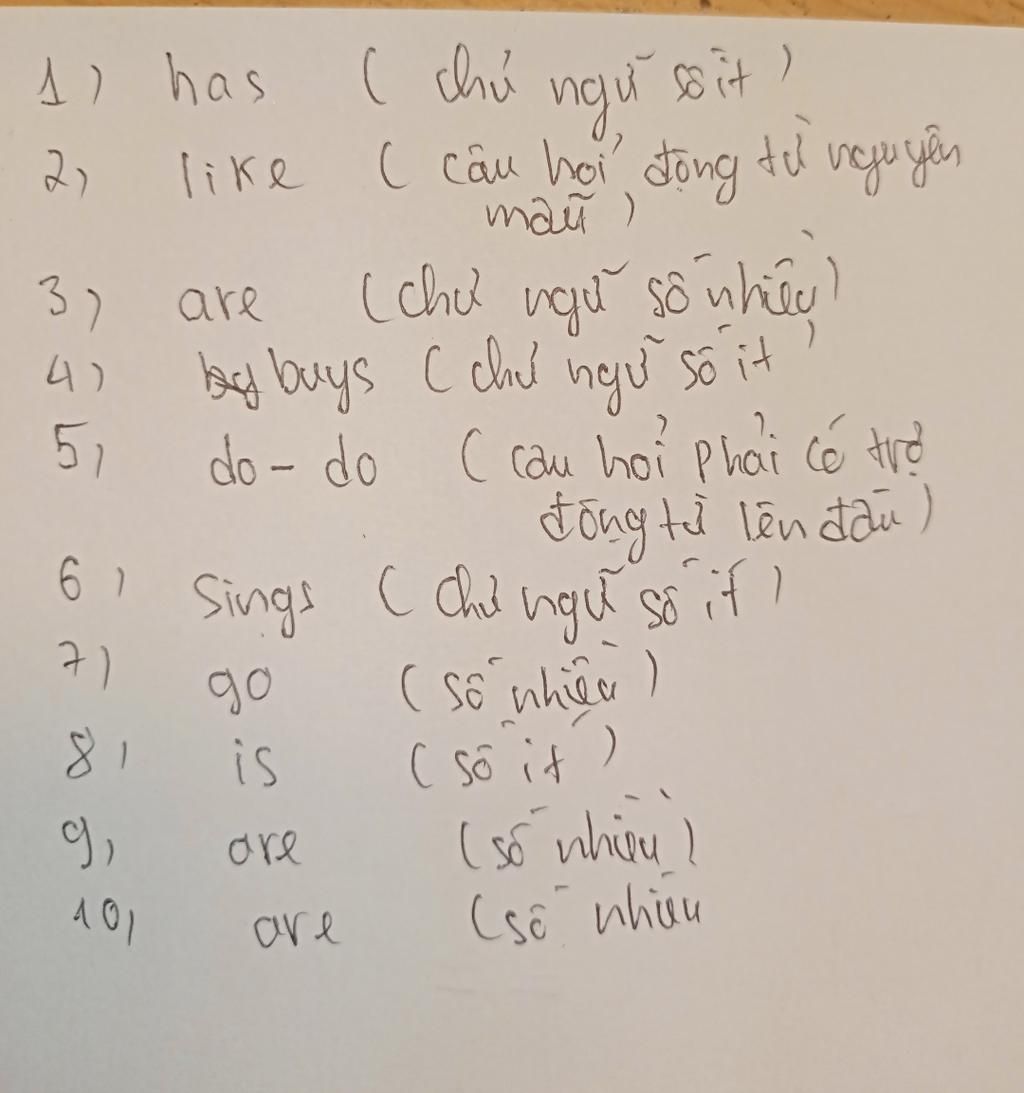 1) has ( chủ ngữ số ít )
2, like ( câu hỏi động từ nguyên
mẫu )
3, are (chủ ngữ số nhiều)
4) buys ( chủ ngữ số ít )
5, do - do ( câu hỏi phải có trợ
động từ lên đầu )
6) Sings ( chủ ngữ số ít )
7) go ( số nhiều )
8, is ( số ít )
9, are (số nhiều)
10, are (số nhiều